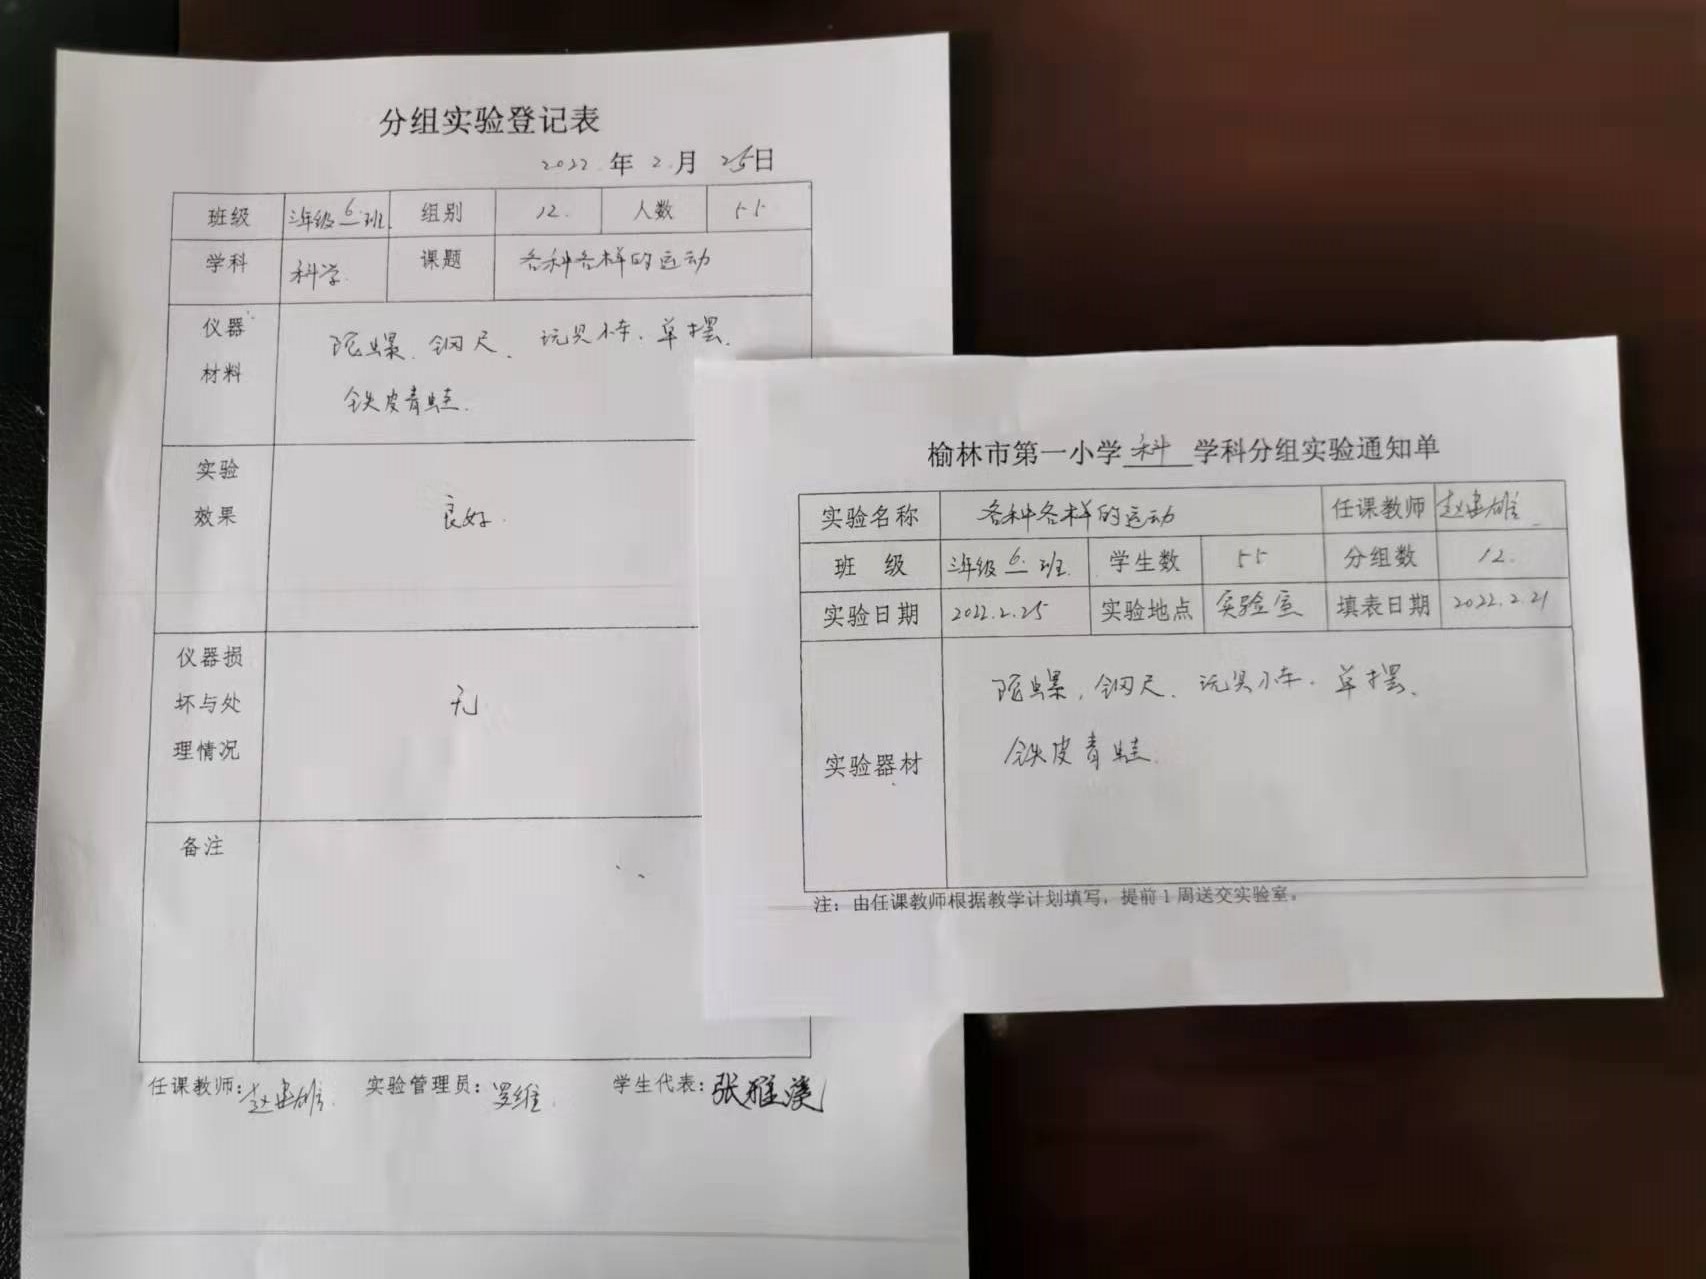 分组实验登记表
2022年2月25日
班级 三年级6班 组别 12. 人数 55
学科 科学. 课题 各种各样的运动
仪器材料 陀螺、钢尺、玩具小车、单摆、
铁皮青蛙.
实验效果 良好.
仪器损坏与处理情况 无
备注
任课教师:赵建雄. 实验管理员:罗维. 学生代表:张雅溪
榆林市第一小学科学科分组实验通知单
实验名称 各种各样的运动 任课教师 赵建雄
班 级 三年级6班. 学生数 55 分组数 12.
实验日期 2022.2.25 实验地点 实验室 填表日期 2022.2.21
实验器材 陀螺、钢尺、玩具小车、单摆、
铁皮青蛙.
注:由任课教师根据教学计划填写,提前1周送交实验室。